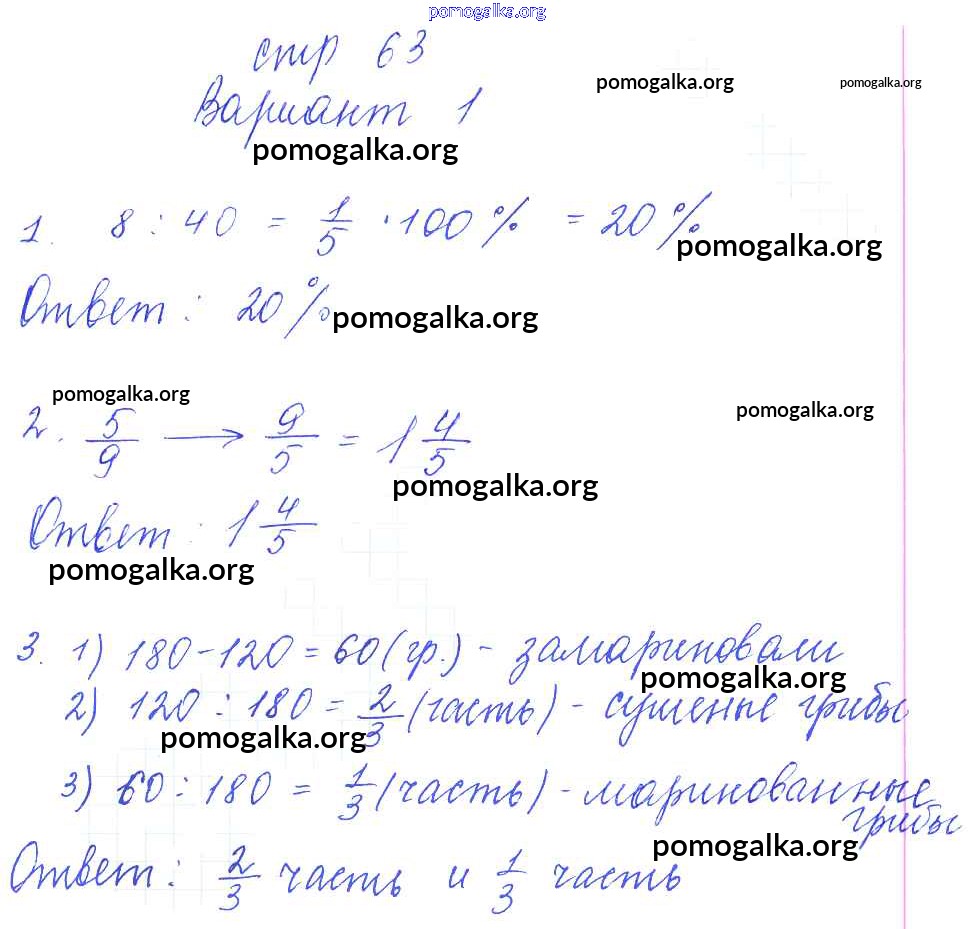 pomogalka.org
стр 63
pomogalka.org pomogalka.org
Вариант 1
pomogalka.org
1. 8 : 40 = 1/5 · 100 % = 20 %
pomogalka.org
Ответ : 20 %
pomogalka.org
pomogalka.org
pomogalka.org
2. 5/9 → 9/5 = 1 4/5
pomogalka.org
Ответ : 1 4/5
pomogalka.org
3. 1) 180 - 120 = 60 (гр.) - замариновали
pomogalka.org
2) 120 : 180 = 2/3 (часть) - сушеные грибы
pomogalka.org
3) 60 : 180 = 1/3 (часть) - маринованные
грибы
pomogalka.org
Ответ : 2/3 часть и 1/3 часть